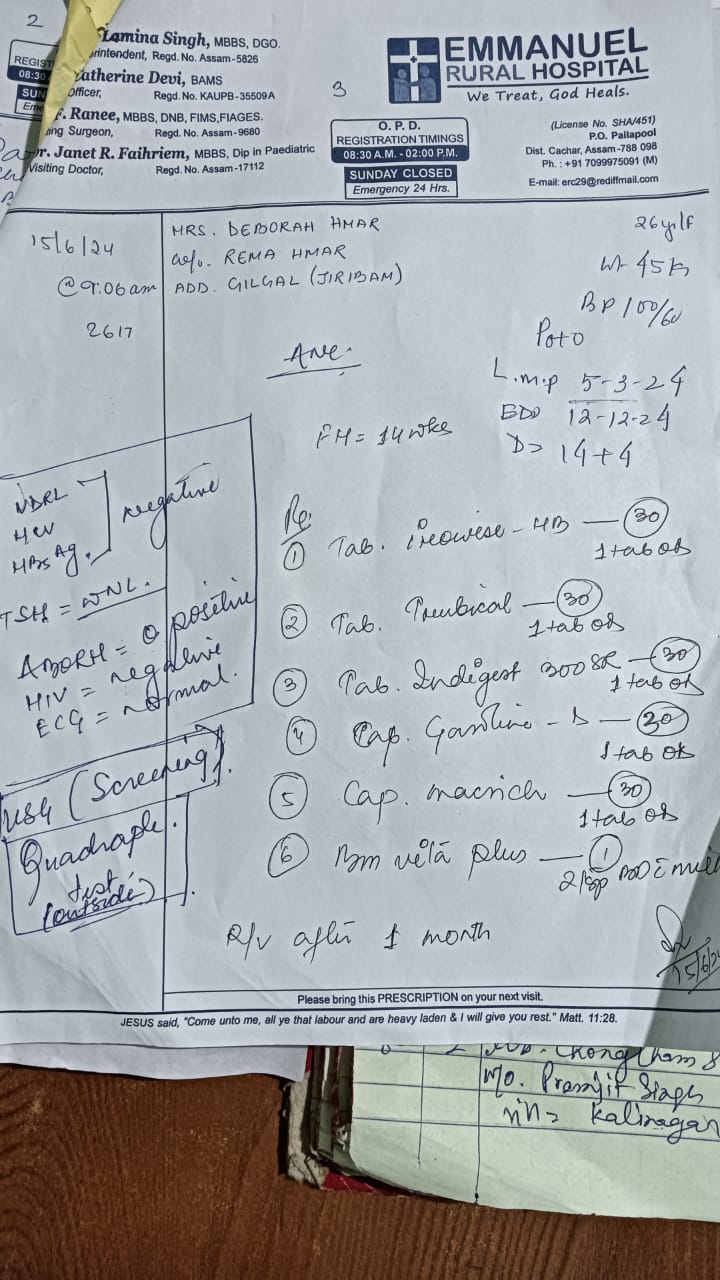 2
Lamina Singh, MBBS, DGO.
rintendent, Regd. No. Assam-5826
atherine Devi, BAMS
Officer, Regd. No. KAUPB-35509A
Ranee, MBBS, DNB, FIMS,FIAGES.
ing Surgeon, Regd. No. Assam-9680
r. Janet R. Faihriem, MBBS, Dip in Paediatric
Visiting Doctor, Regd. No. Assam-17112
REGIST
08:30
SUN
Eme
3
O. P. D.
REGISTRATION TIMINGS
08:30 A.M. - 02:00 P.M.
SUNDAY CLOSED
Emergency 24 Hrs.
EMMANUEL
RURAL HOSPITAL
We Treat, God Heals.
(License No. SHA/451)
P.O. Pallapool
Dist. Cachar, Assam-788 098
Ph. : +91 7099975091 (M)
E-mail: erc29@rediffmail.com
15/6/24
@9:06am
2617
MRS. DEBORAH HMAR
REMA HMAR
ADD. GILGAL (JIRIBAM)
26yr/F
Wt 45
BP 100/60
P0+0
L.m.p 5-3-24
EDD 12-12-24
D> 14+4
Anc.
FH = 14 wks
VDRL
HCV
HBsAg.
negative
TSH = WNL.
ABORH = O positive
HIV = negative
ECG = normal.
USG (Screening).
Quadraple.
test
(outside)
Rx.
① Tab. - HB — 30
1 tab od
② Tab. — 30
1 tab od
③ Tab. Indigest 300 SR — 30
1 tab od
④ Cap. - D — 30
1 tab od
⑤ Cap. macrich — 30
1 tab od
⑥ Bm vita plus — 1
2 tsp BD
R/v after 1 month
15/6/24
Please bring this PRESCRIPTION on your next visit.
JESUS said, "Come unto me, all ye that labour and are heavy laden & I will give you rest." Matt. 11:28.
W/o. Pramjit Singh
Kalinagar